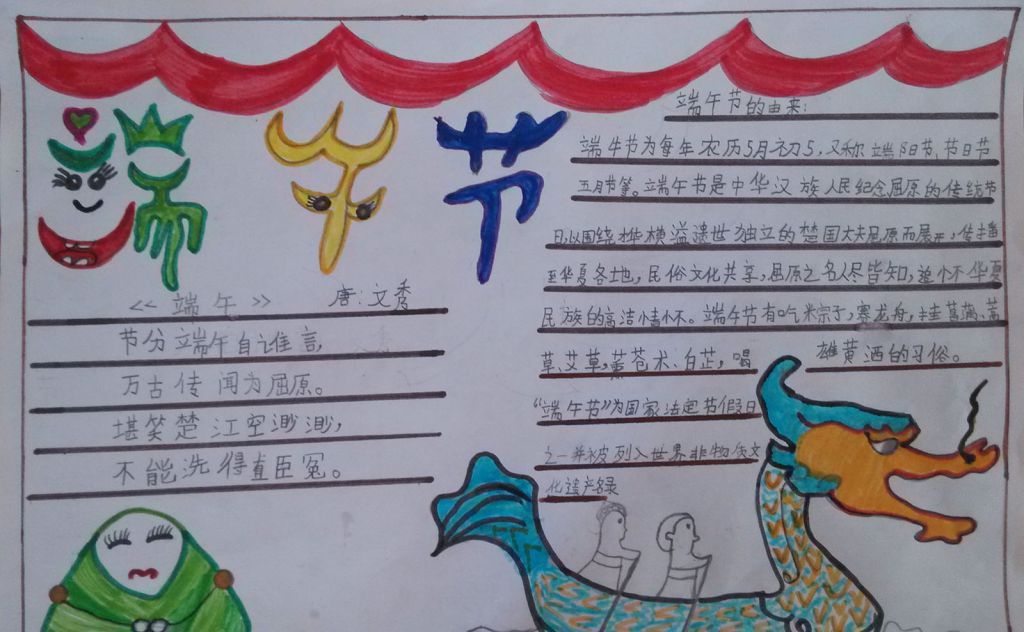 端午节
<<端午>> 唐:文秀
节分端午自谁言,
万古传闻为屈原。
堪笑楚江空渺渺,
不能洗得直臣冤。
端午节的由来:
端午节为每年农历5月初5,又称端阳节、节日节
五月节等。端午节是中华汉族人民纪念屈原的传统节
日,以围绕桦横溢遗世独立的楚国大夫屈原而展开,传播
至华夏各地,民俗文化共享,屈原之名人尽皆知,追个不华夏
民族的高洁情怀。端午节有吃米宗子,赛龙舟,挂菖蒲、蒿
草、艾草,薰苍术、白芷,喝雄黄酒的习俗。
“端午节”为国家法定节假日
之一并被列入世界非物质文
化遗产名录